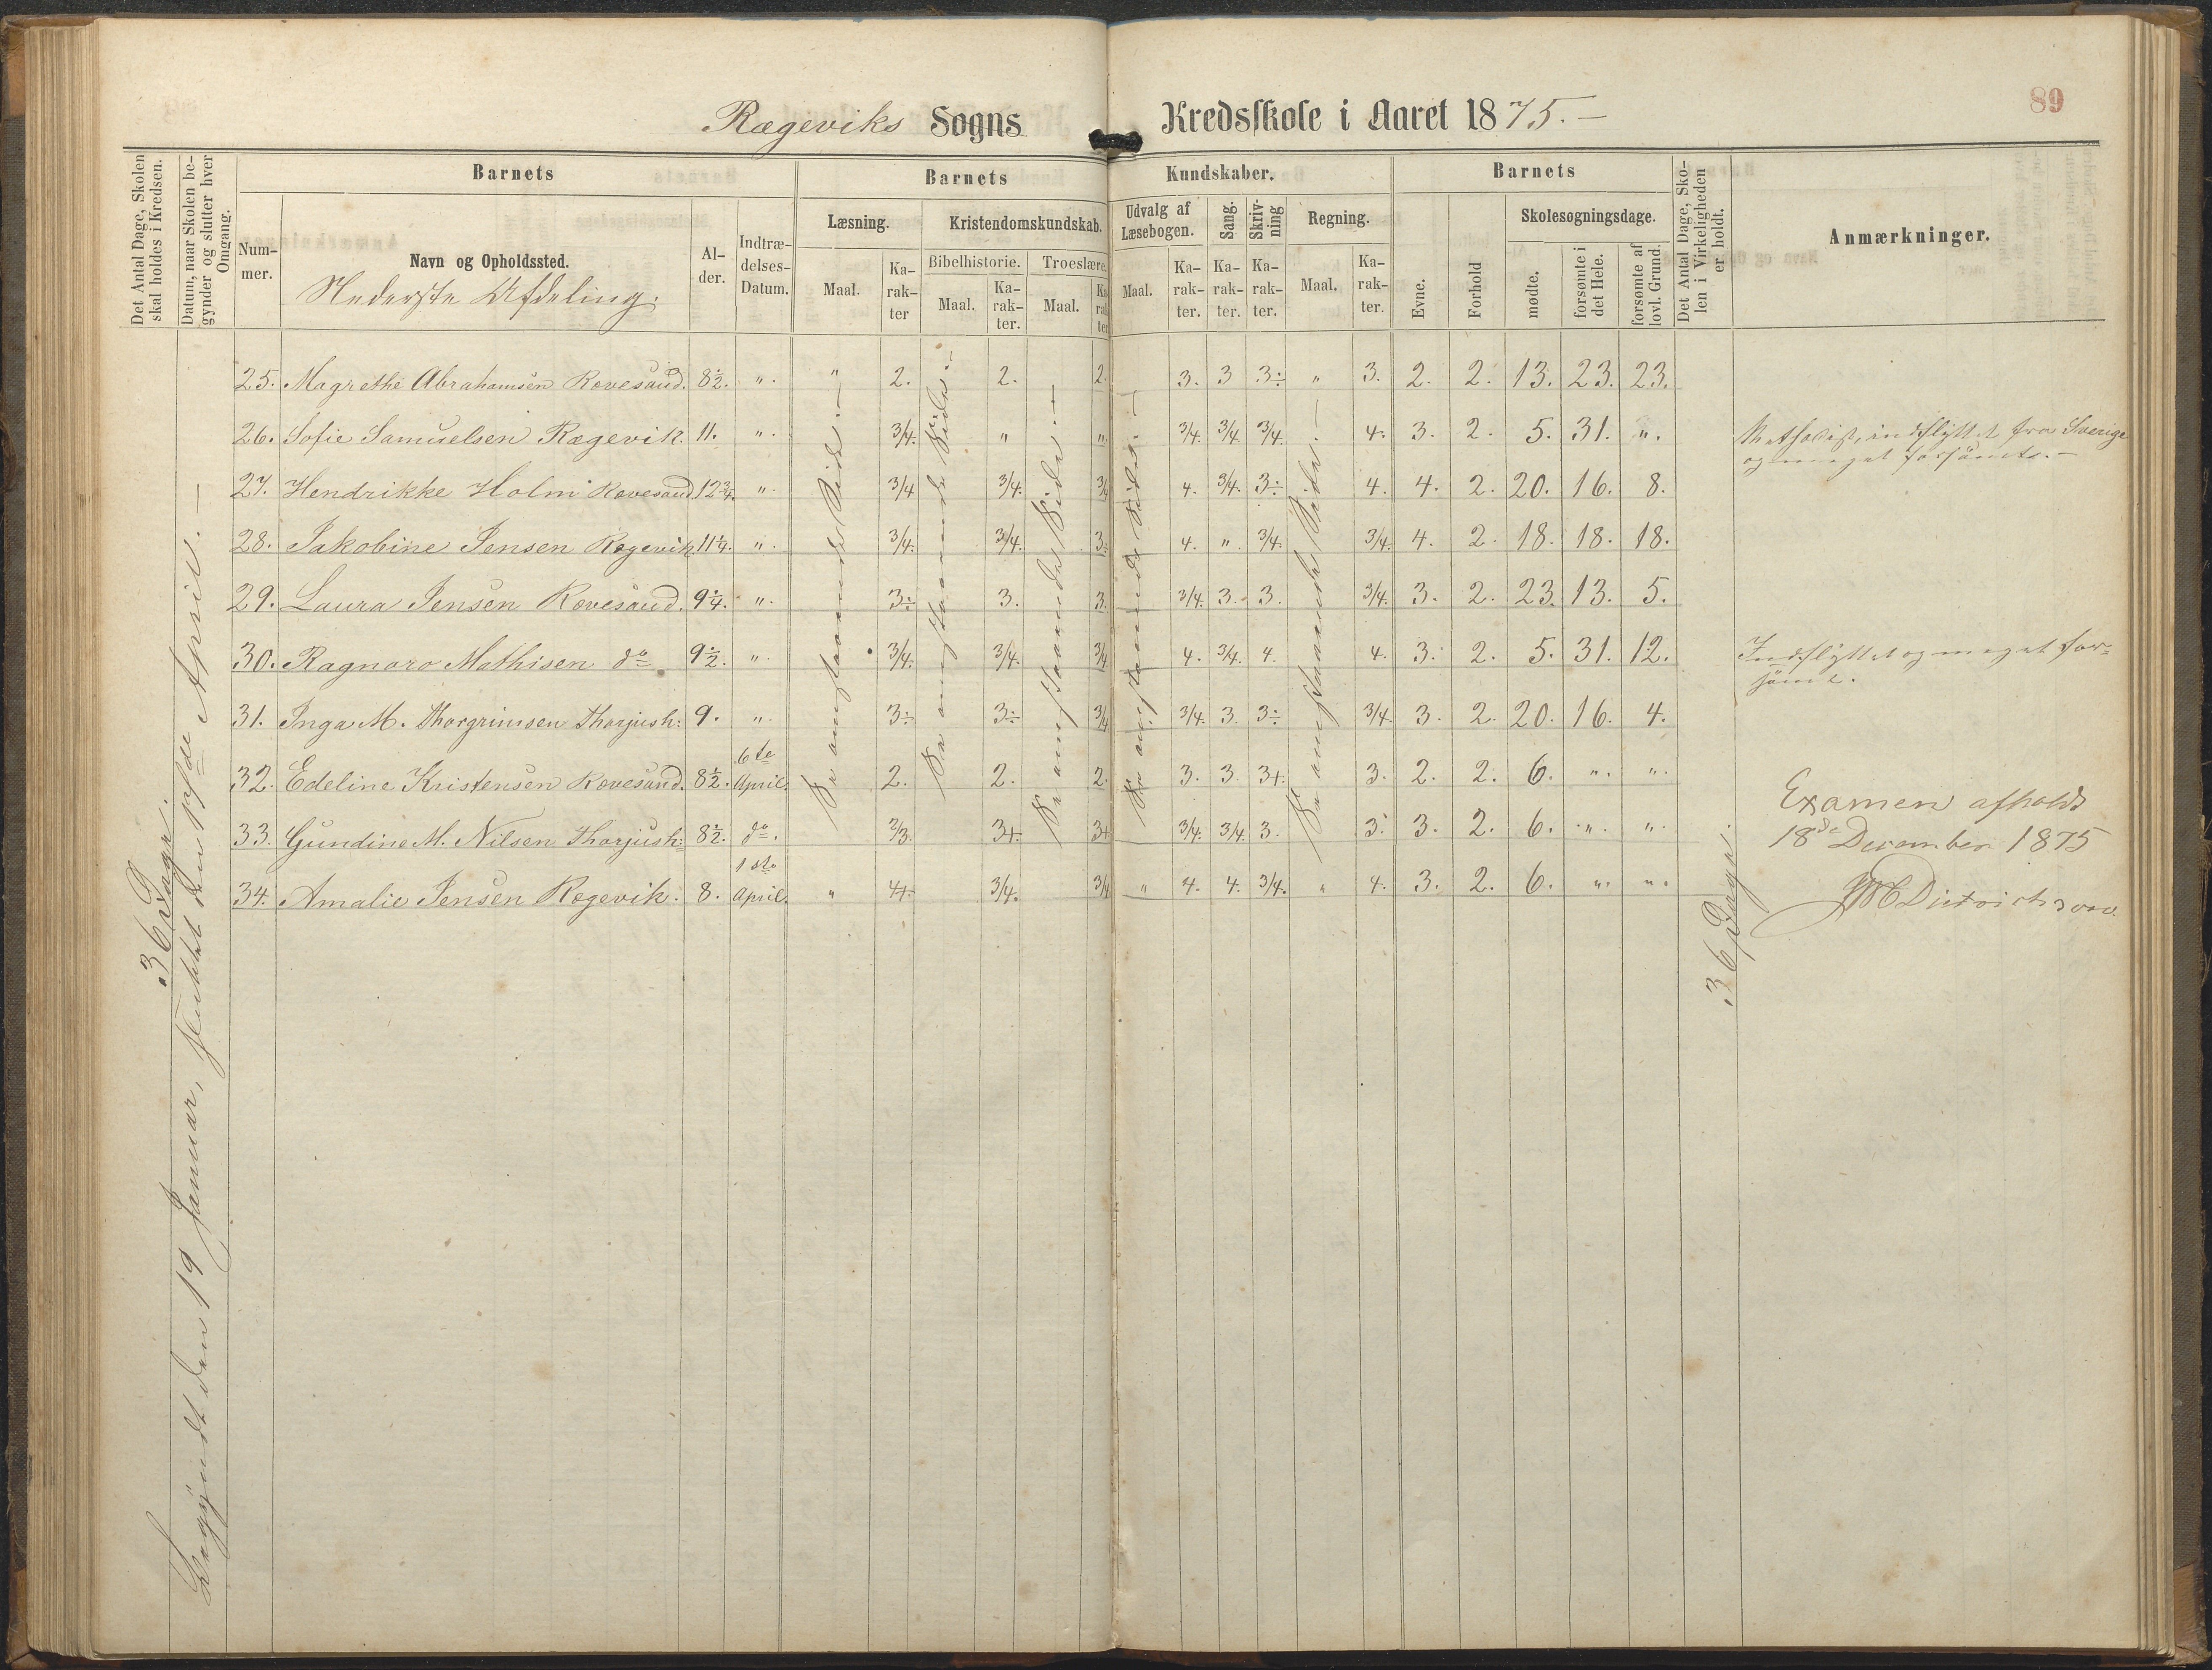 Rægeviks Sogns Kredsskole i Aaret 1875.-
89
Det Antal Dage, Skolen skal holdes i Kredsen.
Datum, naar Skolen begynder og slutter hver Omgang.
Barnets
Nummer.
Navn og Opholdssted.
Nederste Afdeling.
Alder.
Indtrædelses-Datum.
Barnets Kundskaber.
Læsning.
Maal.
Karakter
Kristendomskundskab.
Bibelhistorie.
Maal.
Karakter.
Troeslære.
Maal.
Karakter
Udvalg af Læsebogen.
Maal.
Karakter.
Sang.
Karakter.
Skrivning
Karakter.
Regning.
Maal.
Karakter.
Barnets
Evne.
Forhold
Skolesøgningsdage.
mødte.
forsømte i det Hele.
forsømte af lovl. Grund.
Det Antal Dage, Skolen i Virkeligheden er holdt.
Anmærkninger.
36 Dage.
Begyndt den 19 Januar, sluttet den April. —
25. Magrethe Abrahamsen Rævesand. 8½. ". " 2. 2. 2. 3. 3 3÷ " 3. 2. 2. 13. 23. 23.
26. Sofie Samuelsen Rægevik. 11. ". 3/4. " " 3/4. 3/4. 3/4. 4. 3. 2. 5. 31. ". Methodist, indflyttet fra Sverige
og meget forsømte.-
27. Hendrikke Holm Rævesand 12¾. ". 3/4 3/4. 3/4 4. 3/4. 3÷ 4. 4. 2. 20. 16. 8.
28. Jakobine Jensen Rægevik 11¼. ". 3/4. 3/4. 3÷ 4. ". 3/4. 3/4. 4. 2. 18. 18. 18.
29. Laura Jensen Rævesand. 9¼. ". 3÷ 3. 3. 3/4. 3. 3. 3/4. 3. 2. 23. 13. 5.
30. Ragnoro Mathisen do 9½. ". 3/4. 3/4. 3/4 4. 3/4. 4. 4. 3. 2. 5. 31. 12. Indflyttet og meget for-
sømt.
31. Inga M. Thorgrimsen Thorjush: 9. ". 3÷ 3÷ 3/4 3/4. 3. 3÷ 3/4. 3. 2. 20. 16. 4.
32. Edeline Kristensen Rævesand. 8½. 6te April. 2. 2. 2. 3. 3. 3+. 3. 2. 2. 6. ". ".
33. Gundine M. Nilsen Thorjush: 8½. do. 2/3. 3+ 3+ 3/4. 3/4. 3. 3. 3. 2. 6. ". ".
34. Amalie Jensen Rægevik. 8. 1ste April. " 4+ 3/4. 3/4 " 4. 4. 3/4. " 4. 3. 2. 6. ". ".
Se omstaaende Side.-
Se omstaaende Side.-
Se omstaaende Side.-
Se omstaaende Side.-
Se omstaaende Side.-
36 Dage.
Examen afholdt
18de December 1875
Dietrichson